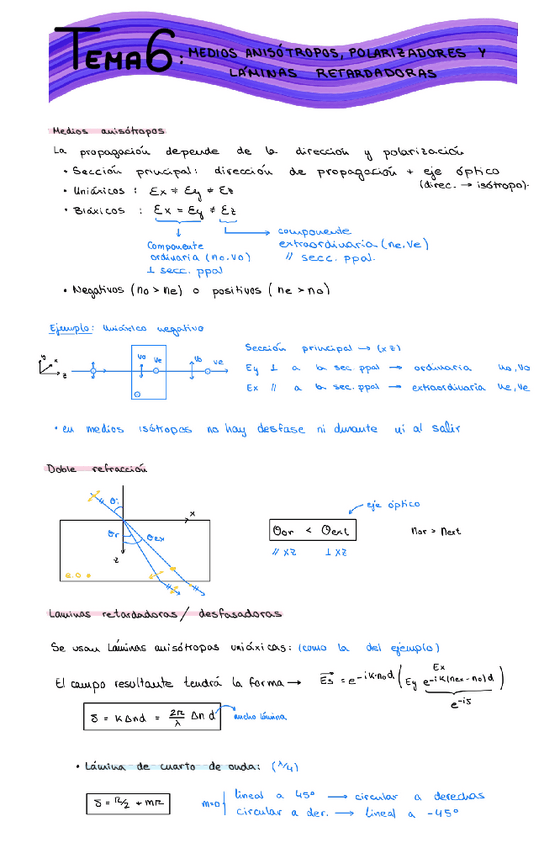 TEMA 6: MEDIOS ANISÓTROPOS, POLARIZADORES Y
LÁMINAS RETARDADORAS
Medios anisótropos
La propagación depende de la dirección y polarización
• Sección principal: dirección de propagación + eje óptico
(direc. → isótropo).
• Uniáxicos : εx ≠ εy ≠ εz
• Biáxicos : εx = εy ≠ εz
componente
extraordinaria (ne,ve)
// secc. ppal.
Componente
ordinaria (no,vo)
⊥ secc. ppal
• Negativos (no > ne) o positivos (ne > no)
Ejemplo: Uniáxico negativo
Sección principal → (xz)
Ey ⊥ a la sec ppal → ordinaria no,vo
Ex // a la sec. ppal → extraordinaria ne,ve
y x z
vo ve vo ve
• en medios isótropos no hay desfase ni durante ni al salir
Doble refracción
θi x
θr θex
z
e.o
eje óptico
θor < θext
nor > next
// xz ⊥ xz
Laminas retardadoras / desfasadoras
Se usan láminas anisótropas uniáxicas: (como la del ejemplo)
El campo resultante tendrá la forma → Es = e^-ik·nod (Ey Ex e^-ik(nex-no)d)
e^-iδ
δ = KΔnd = 2π/λ Δn d
ancho lámina
• Lámina de cuarto de onda: (λ/4)
δ = π/2 + mπ
m=0
lineal a 45° → circular a derechas
circular a der. → lineal a -45°